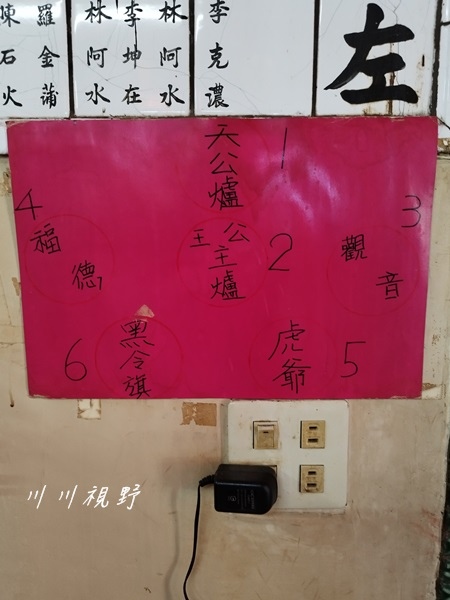 李克濃
林阿水
李坤在
林阿水
羅金蒲
陳石火
左
天公爐 1
王公主爐 2
觀音 3
福德 4
虎爺 5
黑令旗 6
川川視野